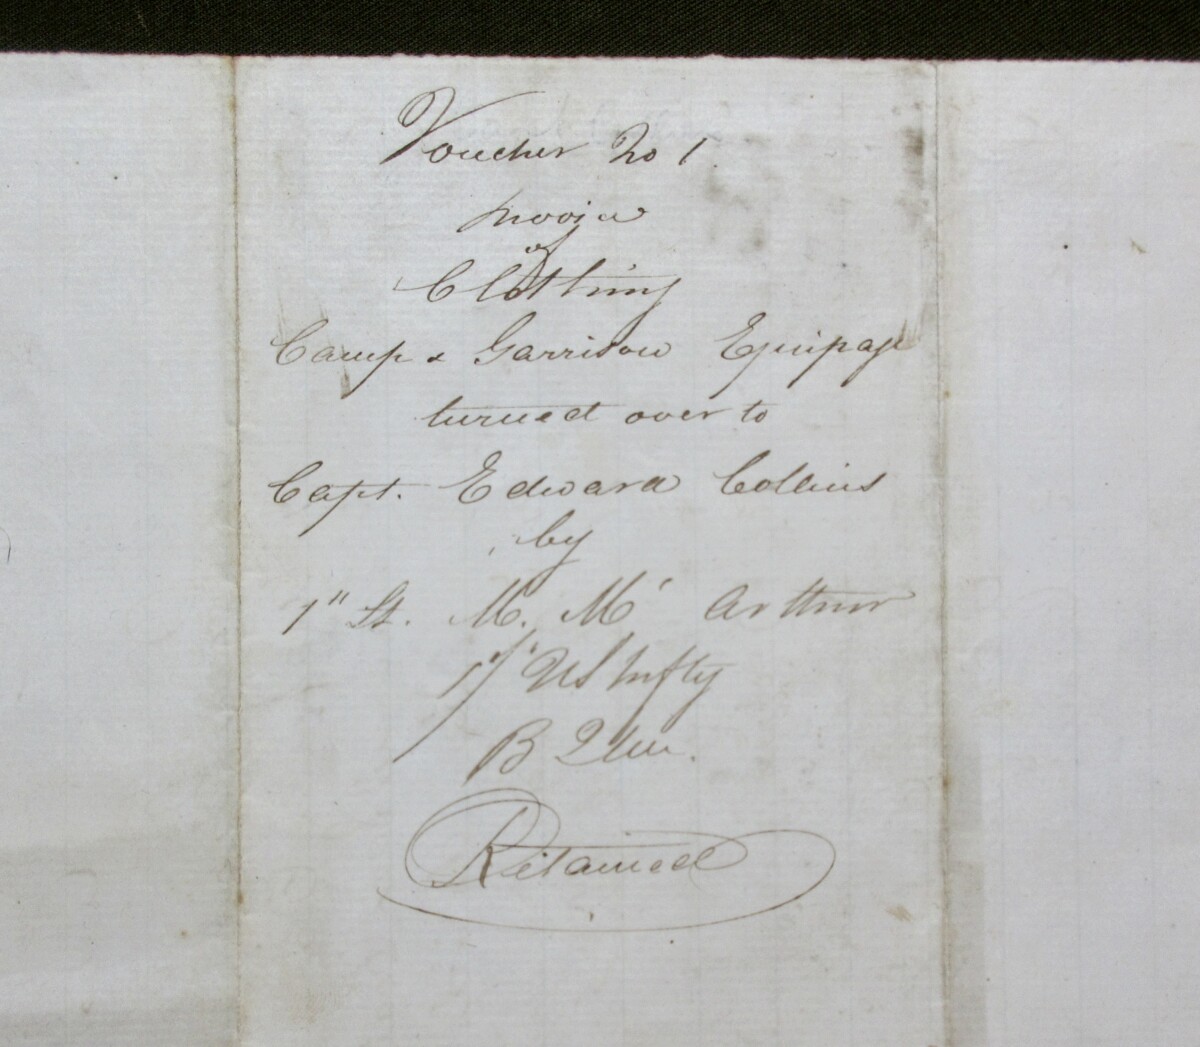 Voucher No 1.
Invoice
of
Clothing
Camp & Garrison Equipage
turned over to
Capt. Edward Collins
by
1" Lt. M. Mc Arthur
17" US Infty
R Q M.
Retained